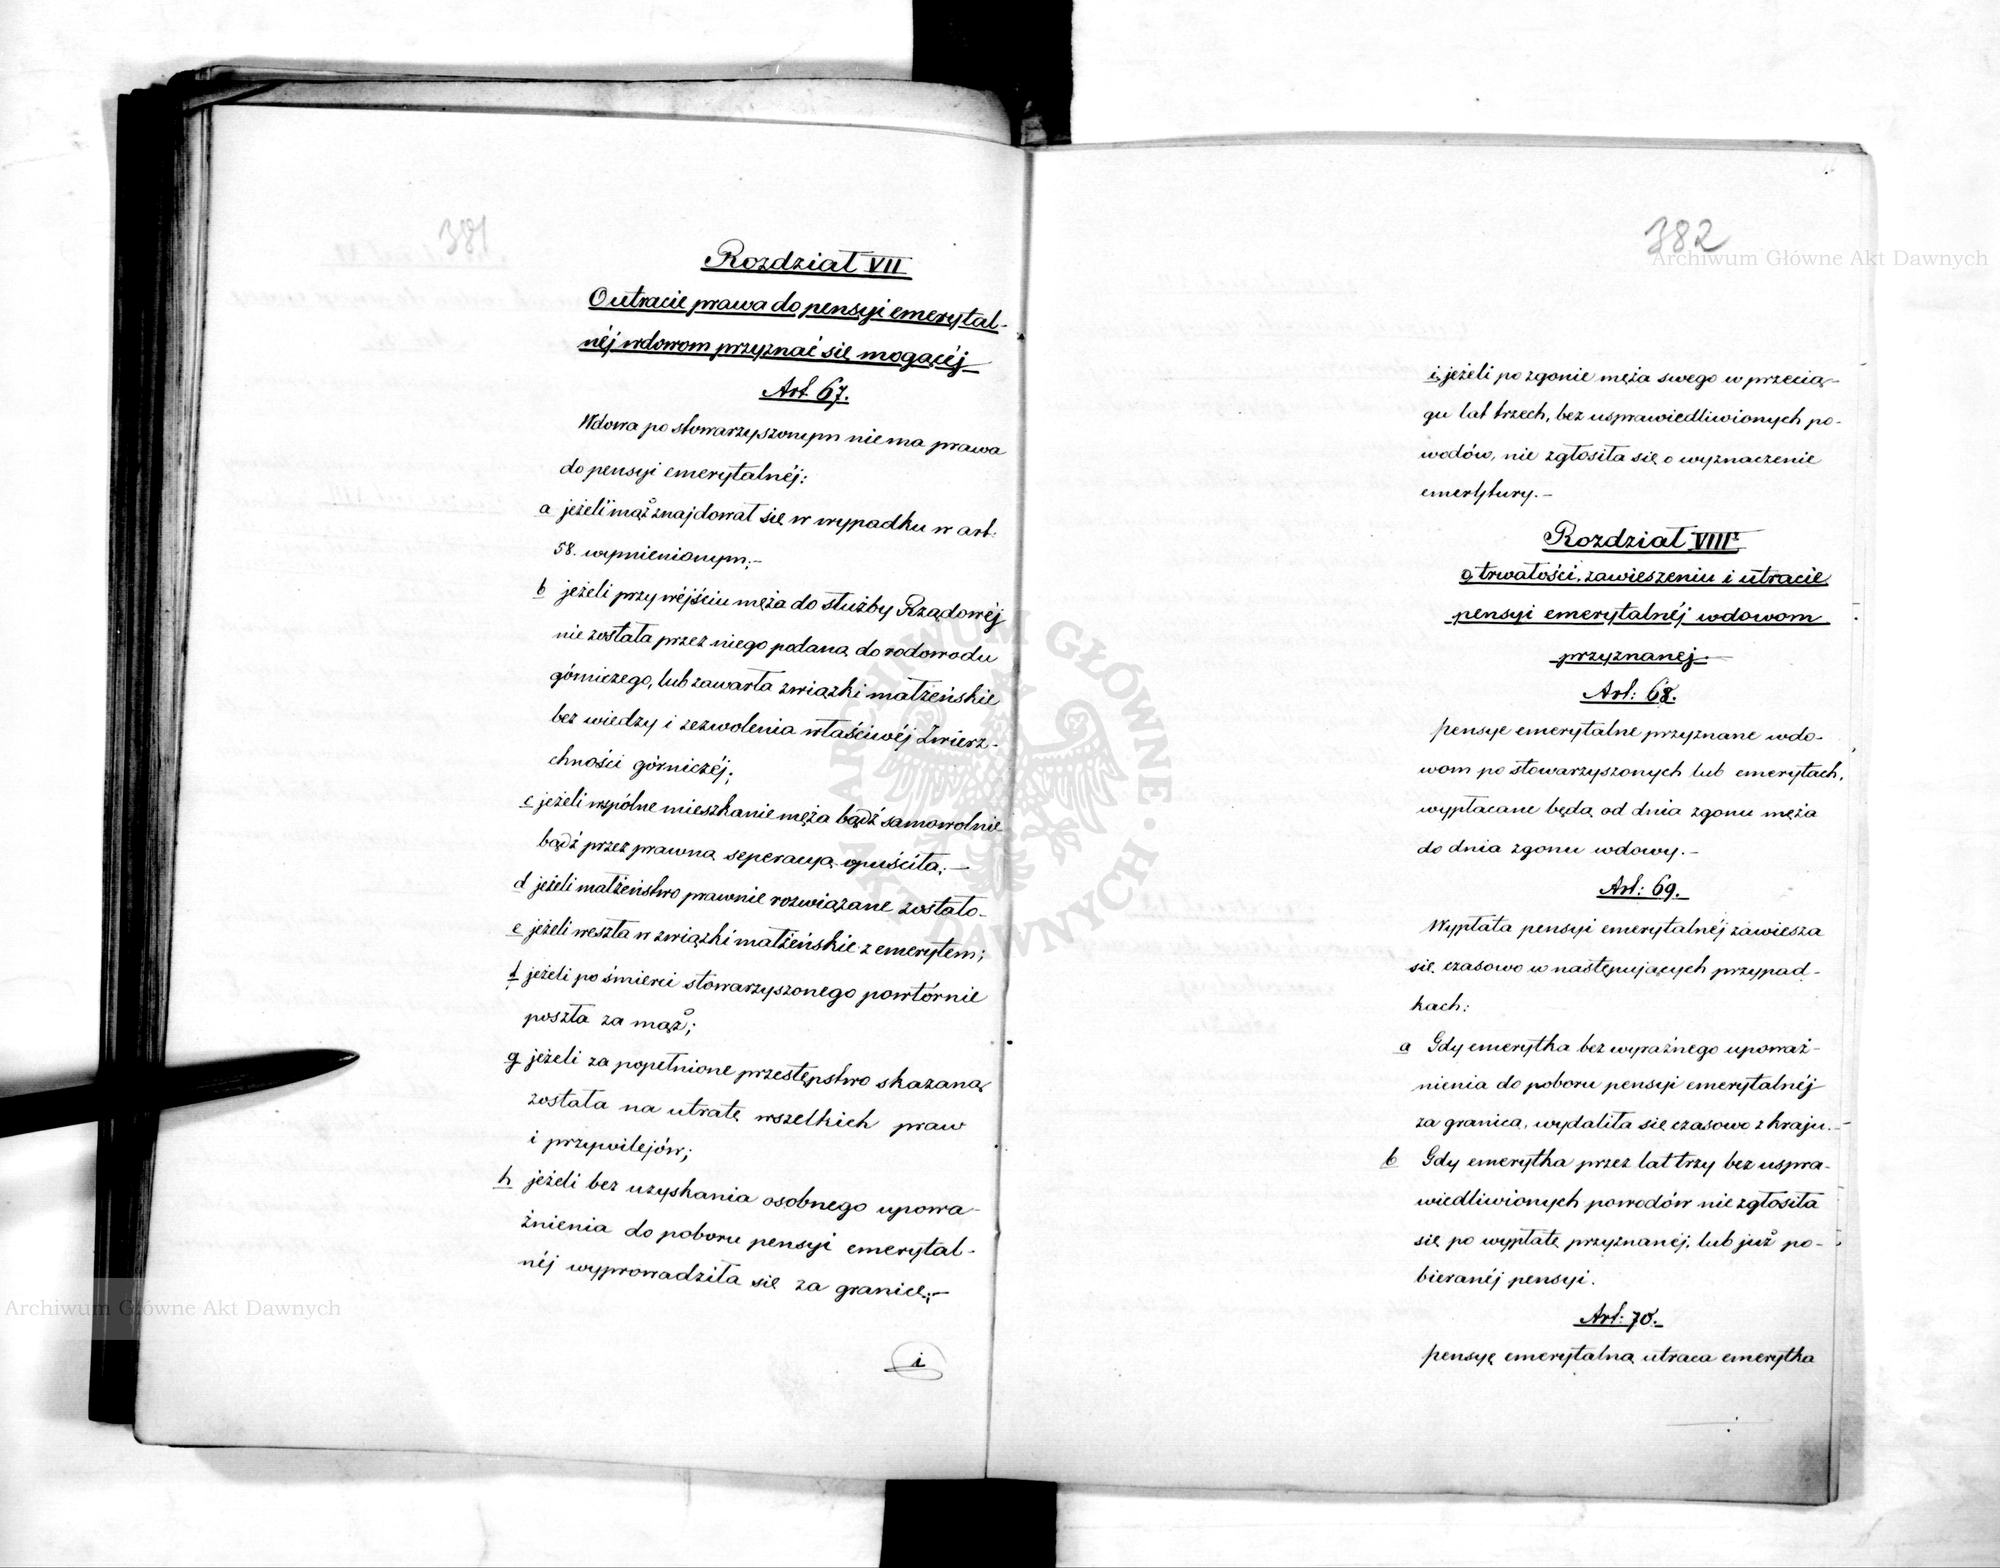 381
Rozdział VII
O utracie prawa do pensyi emerytal-
néj wdowom przyznać się mogącéj
Art. 67.
Wdowa po stowarzyszonym niema prawa
do pensyi emerytalnéj:
a jeżeli mąż znajdował się w wypadku w art:
58. wymienionym;-
b jeżeli przy wéjściu męża do służby Rządowéj
nie została przez niego podaną do rodowodu
górniczego, lub zawarła związki małżeńskie
bez wiedzy i zezwolenia właściwéj Zwierz-
chności górniczéj;
c jeżeli wspólne mieszkanie męża bądź samowolnie
bądź przez prawną seperacyą opuściła;-
d jeżeli małżeństwo prawnie rozwiązane zostało-
e jeżeli weszła w związki małżeńskie z emerytem;
f jeżeli po śmierci stowarzyszonego powtórnie
poszła za mąż;
g jeżeli za popełnione przestępstwo skazaną
została na utratę wszelkich praw
i przywilejów;
h jeżeli bez uzyskania osobnego upowa-
żnienia do poboru pensyi emerytal-
néj wyprowadziła się za granicę;-
i
382
i jeżeli po zgonie męża swego w przecią-
gu lat trzech, bez usprawiedliwionych po-
wodów, nie zgłosiła się o wyznaczenie
emerytury.-
Rozdział VIII
o trwałości, zawieszeniu i utracie
pensyi emerytalnéj wdowom
przyznanej.
Art: 68.
pensye emerytalne przyznane wdo-
wom po stowarzyszonych lub emerytach,
wypłacane będą od dnia zgonu męża
do dnia zgonu wdowy.-
Art: 69.
Wypłata pensyi emerytalnéj zawiesza
się czasowo w następujących przypad-
kach:
a Gdy emerytka bez wyraźnego upoważ-
nienia do poboru pensyi emerytalnéj
za granicą, wydaliła się czasowo z kraju.-
b Gdy emerytka przez lat trzy bez uspra-
wiedliwionych powodów nie zgłosiła
się po wypłatę przyznanéj, lub już po-
bieranéj pensyi.
Art: 70.
pensyę emerytalną utraca emerytka
Archiwum Główne Akt Dawnych
Archiwum Główne Akt Dawnych
ARCHIWUM GŁÓWNE AKT DAWNYCH